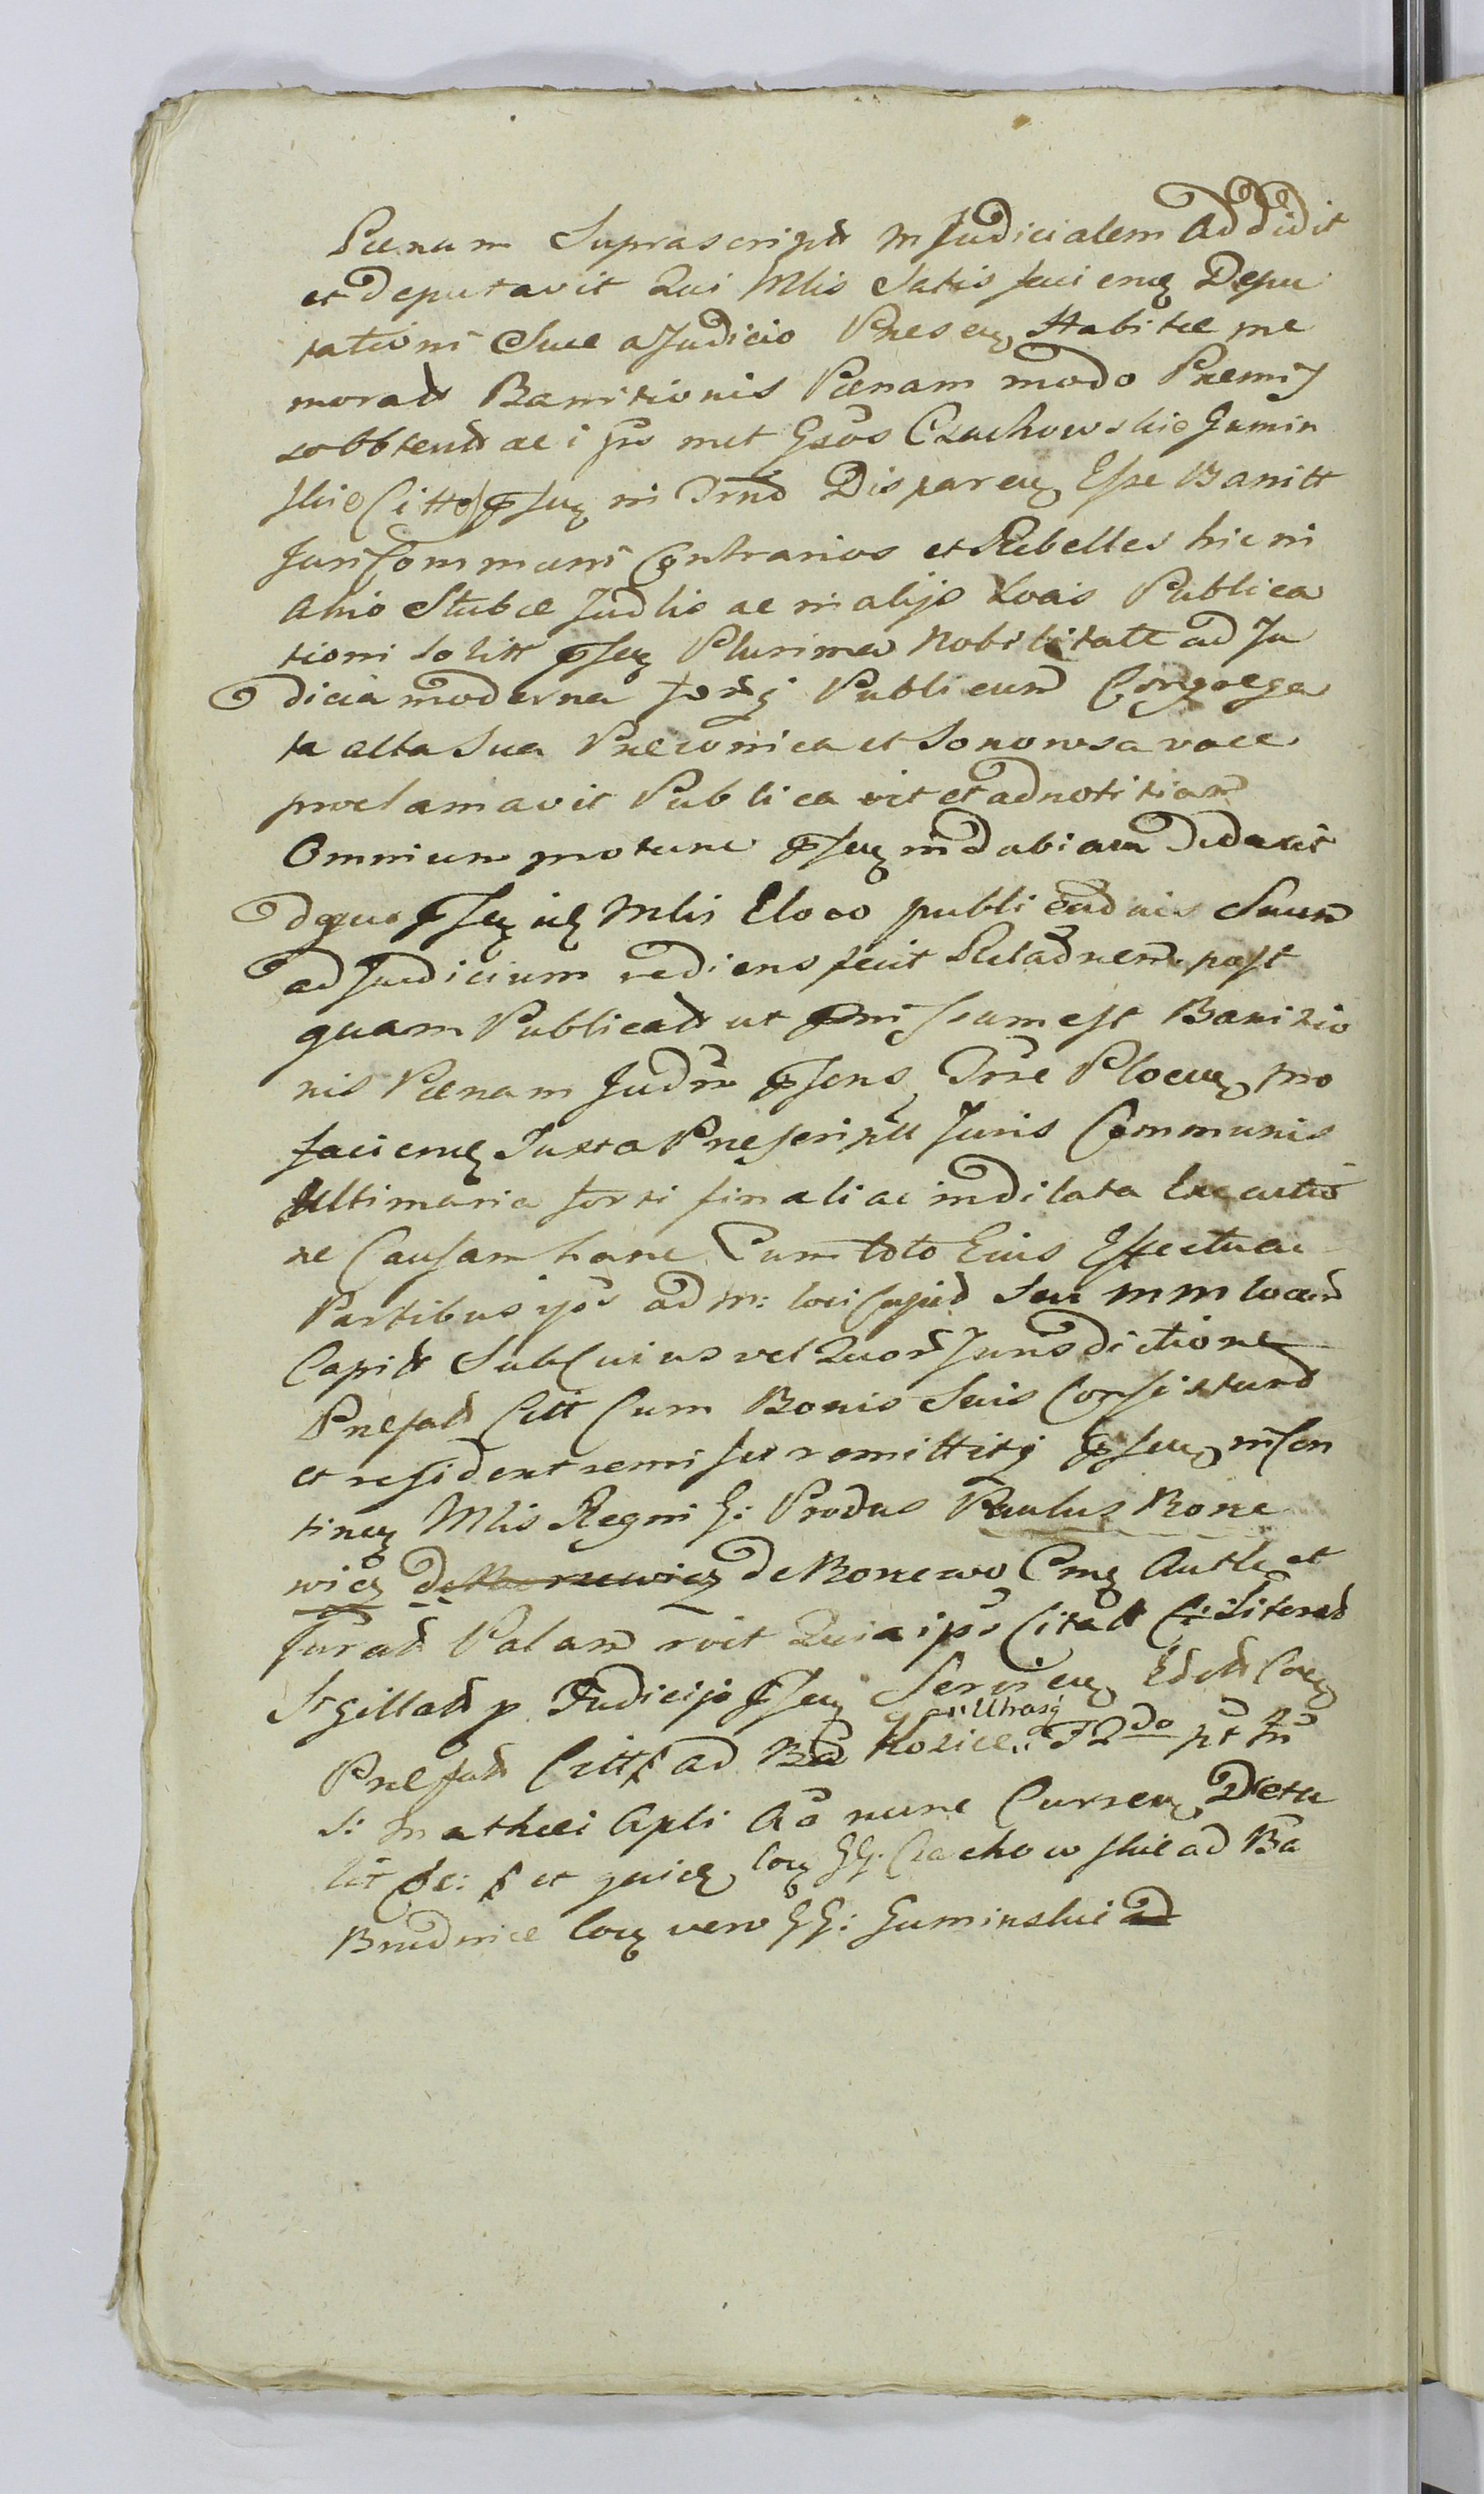 Pœnam Suprascript in Judicialem Addidit
et deputavit Qui Mlis Satis facienꝫ Depu
tationi Suæ a Judicio Præsenꝫ Habitæ me
morat Banitionis Pœnam modo Præmis
so obtent ac ipsos met Gsos Czachowskie Gumin
skie Citto psenꝫ in Trno Disparenꝫ Esse Banitt
Juri Communi Contrarios et Rebelles hic in
Atrio Stubæ Judlis ac in alijs Locis Publica
tioni Solitt psenꝫ Plurima Nobilitate ad Ju
dicia moderna Publicum Congrega
ta alta Sua Præconica et Sonorosa voce
proclamavit Publicavit et ad notitiam
Omnium psenꝫ indubiam deduxit
de quo psenꝫ Mlis E loco Suum
ad Judicium rediens fecit Relaonem post
quam Publicat ut præmissum est Banitio
nis Pœnam Judm psens Trre Plocenꝫ
facienꝫ Juxta Præscript Juris Communis
Ultimaria forti finali ac indilata Executio
ne Causam hanc Cum toto Eius Effectu ac
Partibus ipos ad m: loci Capid Seu mm locord
Capit Sub Cuius vel Quor Jurisdictione
Præfat Citt Cum Bonis Suis Consistunt
et resident remisit remittitq psenꝫ in Con
tinenꝫ Mlis Regni G: Produs Paulus Bone
wicz de Bonewicz de Bonewo Cmꝫ Auth et
Jurat Palam roit Quia ipse Citatt Literat
Sigillat p Judicijo psenꝫ Servienꝫ Edit Conꝫ
Præfat Citt ad Ba Kozice Uhrasy F 2do pt fm
S: Mathæi Apli Ao nunc Currenꝫ Detu
lit et quidꝫ Conꝫ GG: Czachowskie ad Ba
Brudnice Conꝫ vero GG: Guminskie ad